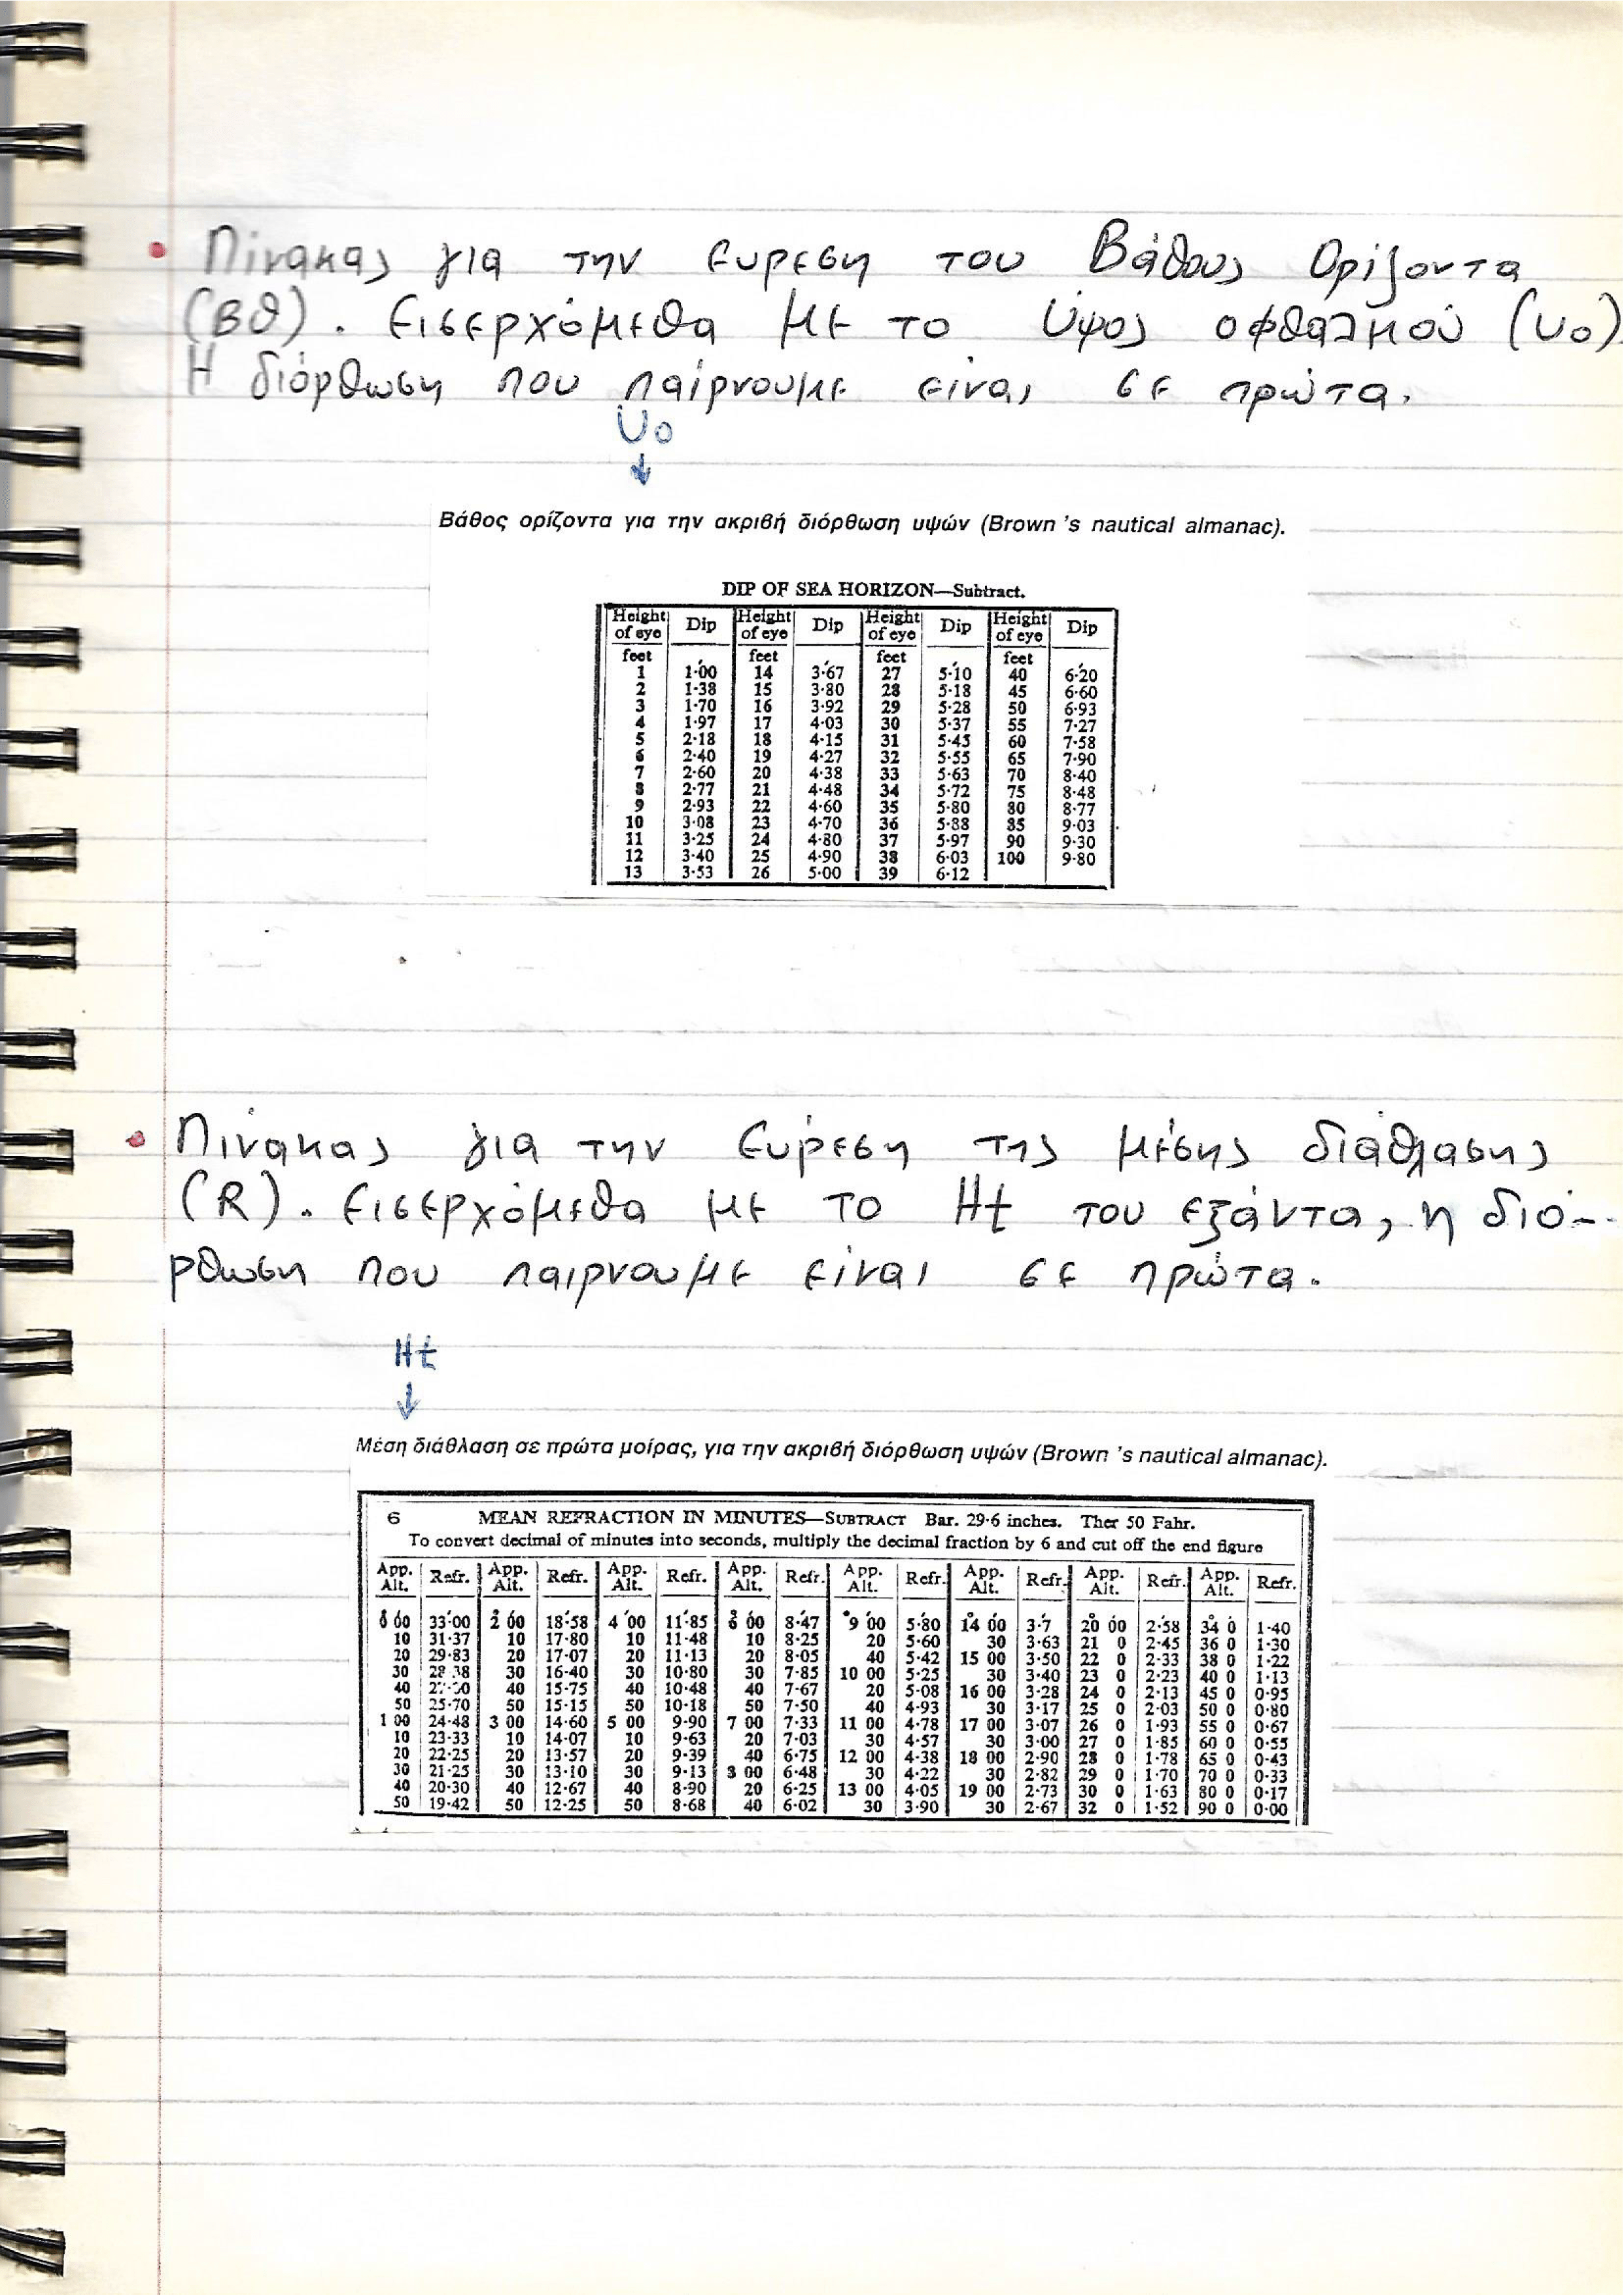 • Πίνακας για την Ευρεση του Βάθους Ορίζοντα
(Βθ). Εισερχόμεθα με το Ύψος οφθαλμού (υο).
Η διόρθωση που παίρνουμε είναι σε πρώτα.
Uo
↓
Βάθος ορίζοντα για την ακριβή διόρθωση υψών (Brown 's nautical almanac).
DIP OF SEA HORIZON—Subtract.
Height of eye | Dip | Height of eye | Dip | Height of eye | Dip | Height of eye | Dip
feet feet feet feet
1 1·00 14 3·67 27 5·10 40 6·20
2 1·38 15 3·80 28 5·18 45 6·60
3 1·70 16 3·92 29 5·28 50 6·93
4 1·97 17 4·03 30 5·37 55 7·27
5 2·18 18 4·15 31 5·45 60 7·58
6 2·40 19 4·27 32 5·55 65 7·90
7 2·60 20 4·38 33 5·63 70 8·40
8 2·77 21 4·48 34 5·72 75 8·48
9 2·93 22 4·60 35 5·80 80 8·77
10 3·08 23 4·70 36 5·88 85 9·03
11 3·25 24 4·80 37 5·97 90 9·30
12 3·40 25 4·90 38 6·03 100 9·80
13 3·53 26 5·00 39 6·12
• Πίνακας για την Ευρεση της μέσης διάθλασης
(R). Εισερχόμεθα με το Ht του εξάντα, η διό-
ρθωση που παιρνουμε είναι σε πρώτα.
Ht
↓
Μέση διάθλαση σε πρώτα μοίρας, για την ακριβή διόρθωση υψών (Brown 's nautical almanac).
6 MEAN REFRACTION IN MINUTES—SUBTRACT Bar. 29·6 inches. Ther 50 Fahr.
To convert decimal of minutes into seconds, multiply the decimal fraction by 6 and cut off the end figure
App. Alt. | Refr. | App. Alt. | Refr. | App. Alt. | Refr. | App. Alt. | Refr. | App. Alt. | Refr. | App. Alt. | Refr. | App. Alt. | Refr. | App. Alt. | Refr.
0 00 33·00 2 00 18·58 4 00 11·85 6 00 8·47 9 00 5·80 14 00 3·7 20 00 2·58 34 0 1·40
10 31·37 10 17·80 10 11·48 10 8·25 20 5·60 30 3·63 21 0 2·45 36 0 1·30
20 29·83 20 17·07 20 11·13 20 8·05 40 5·42 15 00 3·50 22 0 2·33 38 0 1·22
30 28·38 30 16·40 30 10·80 30 7·85 10 00 5·25 30 3·40 23 0 2·23 40 0 1·13
40 40 15·75 40 10·48 40 7·67 20 5·08 16 00 3·28 24 0 2·13 45 0 0·95
50 25·70 50 15·15 50 10·18 50 7·50 40 4·93 30 3·17 25 0 2·03 50 0 0·80
1 00 24·48 3 00 14·60 5 00 9·90 7 00 7·33 11 00 4·78 17 00 3·07 26 0 1·93 55 0 0·67
10 23·33 10 14·07 10 9·63 20 7·03 30 4·57 30 3·00 27 0 1·85 60 0 0·55
20 22·25 20 13·57 20 9·39 40 6·75 12 00 4·38 18 00 2·90 28 0 1·78 65 0 0·43
30 21·25 30 13·10 30 9·13 8 00 6·48 30 4·22 30 2·82 29 0 1·70 70 0 0·33
40 20·30 40 12·67 40 8·90 20 6·25 13 00 4·05 19 00 2·73 30 0 1·63 80 0 0·17
50 19·42 50 12·25 50 8·68 40 6·02 30 3·90 30 2·67 32 0 1·52 90 0 0·00